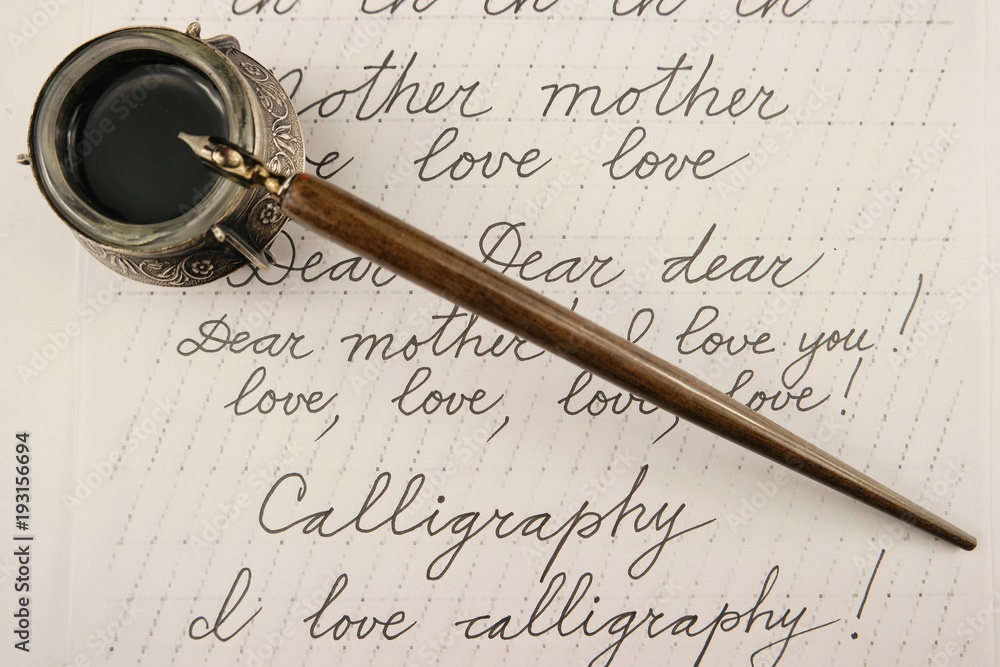 mother mother
love love
Dear Dear dear
Dear mother, I love you!
love, love, love, love!
Calligraphy
I love calligraphy!
Adobe Stock | #193156694